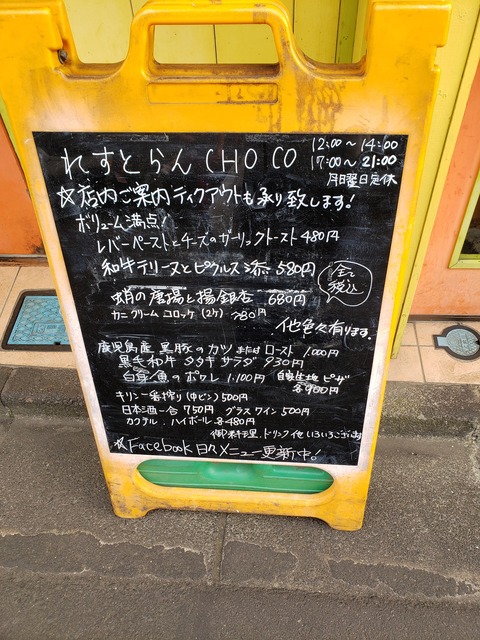 れすとらん CHOCO
12:00～14:00
17:00～21:00
月曜日定休
☆店内ご案内テイクアウトも承り致します!
ボリューム満点!
レバーペーストとチーズのガーリックトースト 480円
和牛テリーヌとピクルス添 580円
全て
税込
蛸の唐揚と揚銀杏 680円
カニクリームコロッケ(2ヶ) 780円
他色々有ります。
鹿児島産 黒豚のカツ または ロースト 1,000円
黒毛和牛 タタキ サラダ 930円
白身魚のポワレ 1,100円
自家製生地ピザ
各900円
キリン一番搾り(中ビン) 500円
日本酒一合 750円 グラスワイン 500円
カクテル、ハイボール 各480円
御料理、ドリンク他いろいろございます
☆Facebook 日々メニュー更新中!